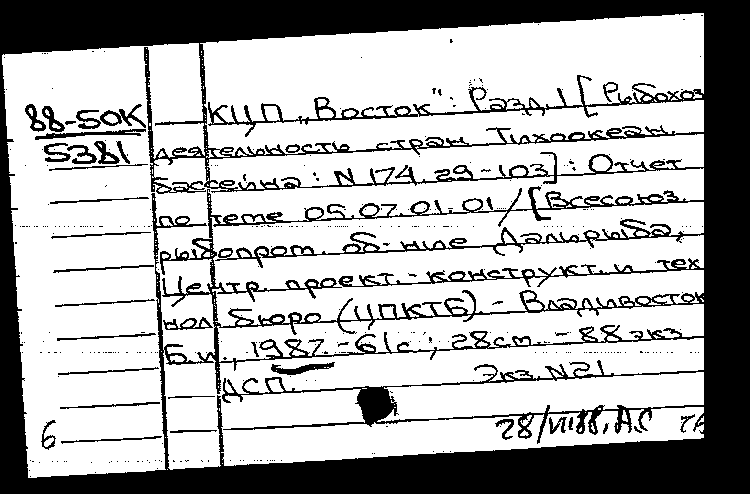 88-50К КЦП „Восток": Разд. 1 [Рыбохоз
5381 деятельность стран Тихоокеан.
бассейна: N 174.29-103]: Отчет
по теме 05.07.01.01 / [Всесоюз.
рыбопром. об-ние Дальрыба,
Центр. проект.-конструкт. и тех
нол. бюро (ЦПКТБ). - Владивосток
Б.и., 1987. - 61с.; 28см. - 88 экз.
ДСП. Экз. N21.
6 28/VII88. А.С